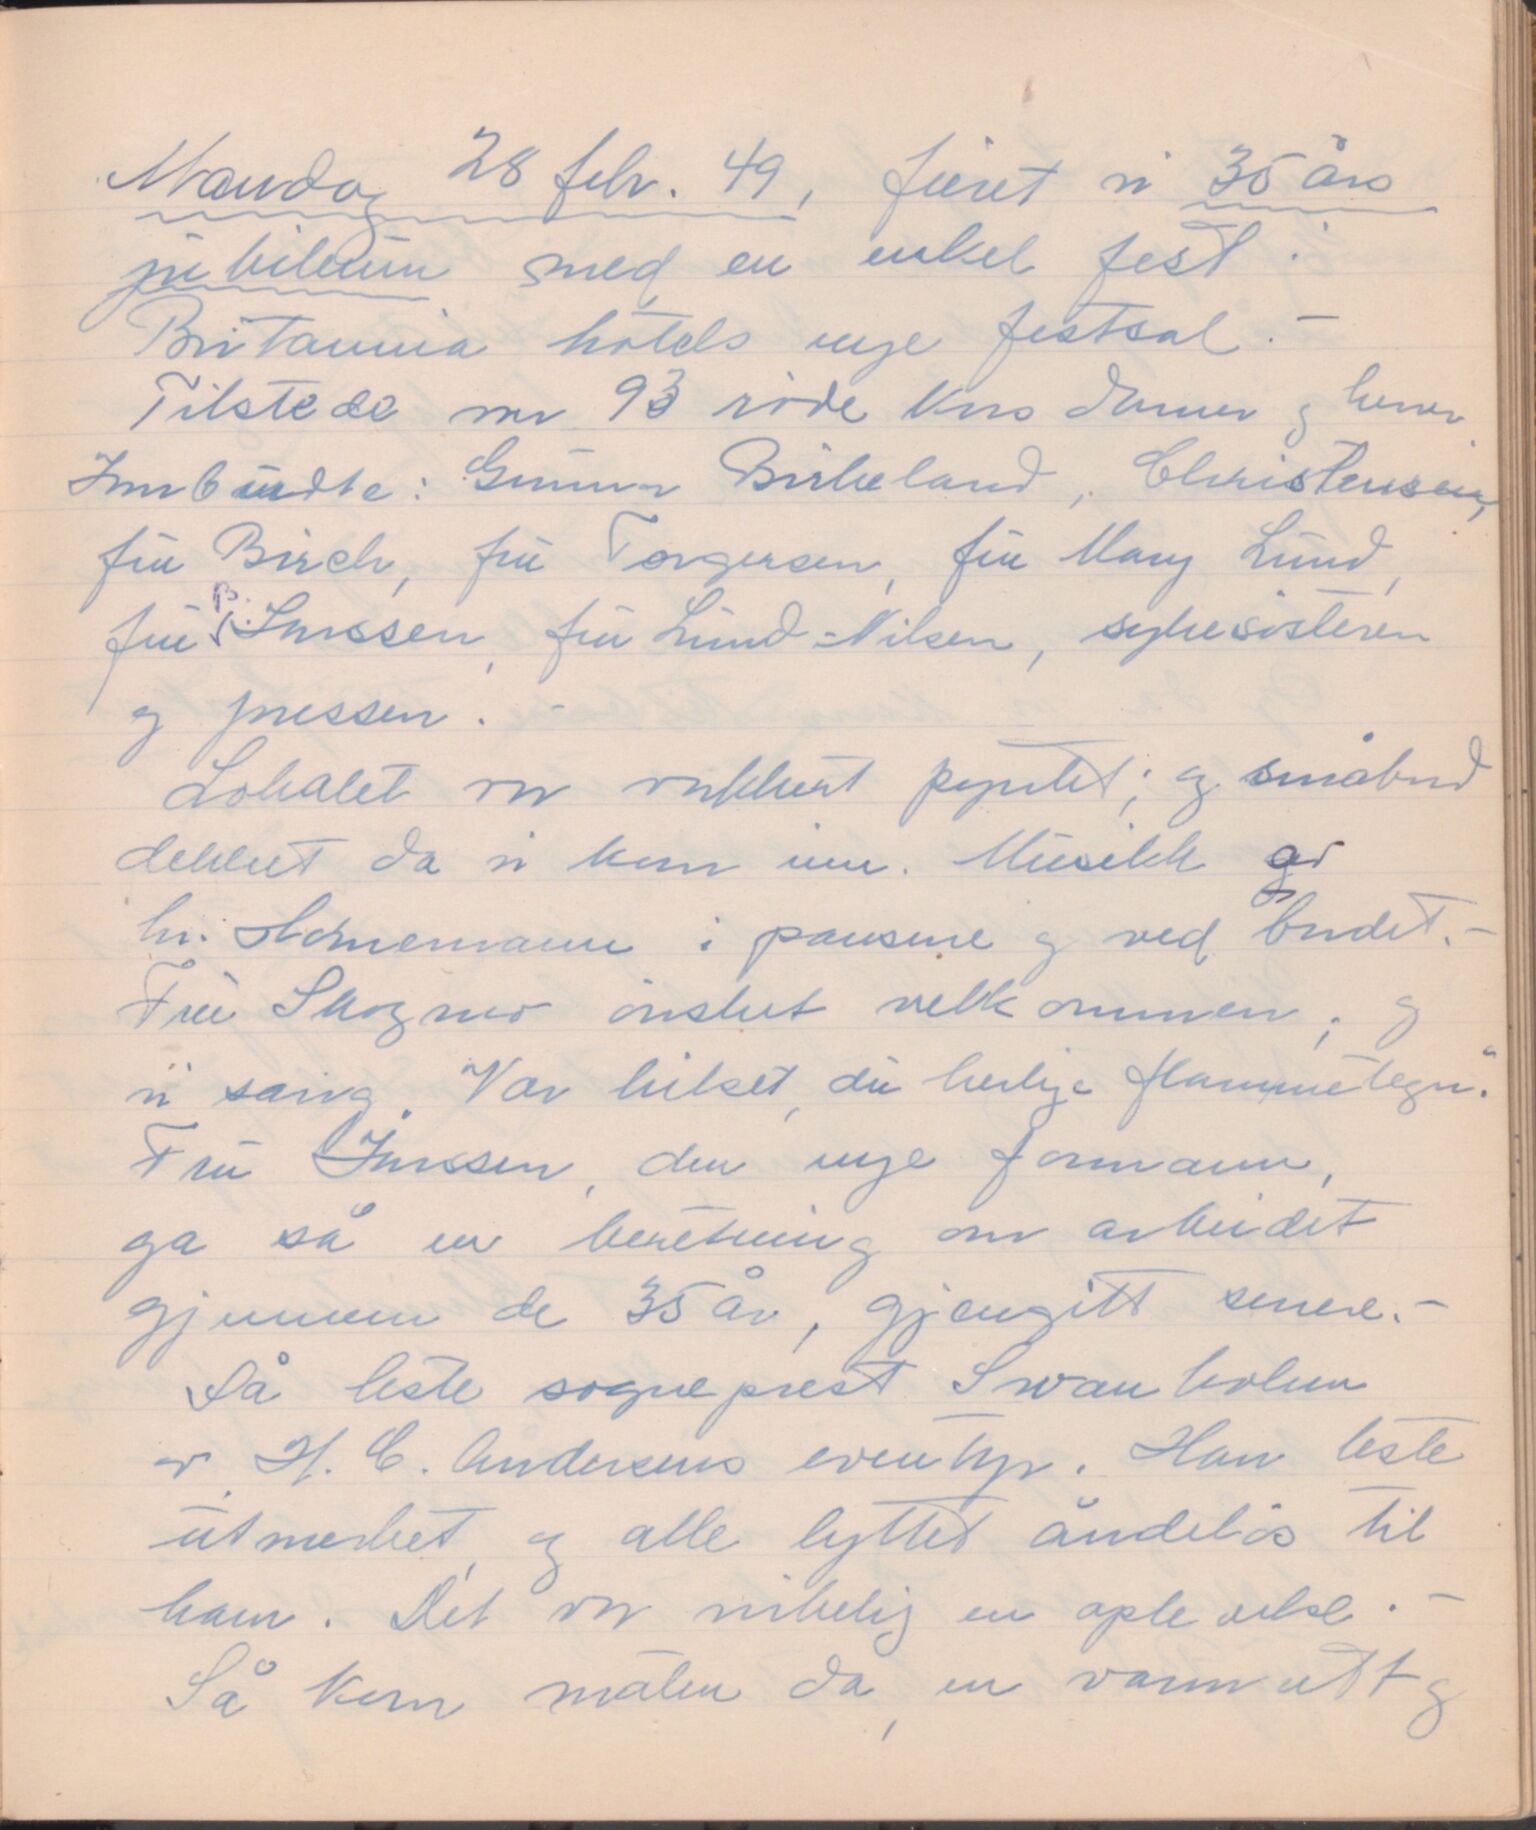 Mandag 28 febr. 49, feiret vi 35 års
jubileum med en enkel fest i
Britannia hotels nye festsal. -
Tilstede var 93 røde kors damer og herrer
Innbudte: Gunnar Birkeland, Christensen,
fru Birch, fru Torgersen, fru Mary Lund,
fru B. Jenssen, fru Lund-Nilsen, sykesøsteren
og pressen. -
Lokalet var vakkert pyntet, og småbord
dekket da vi kom inn. Musikk av
hr. Hornemann i pausene og ved bordet. -
Fru Skogmo ønsket velkommen, og
vi sang "Vær hilset, du herlige flammetegn."
Fru Jenssen, den nye formann,
ga så en beretning om arbeidet
gjennem de 35 år, gjengitt senere. -
Så leste sogneprest Svanholm
av H. C. Andersens eventyr. Han leste
utmerket, og alle lyttet åndeløs til
ham. Det var virkelig en oplevelse. -
Så kom maten da, en varm rett og